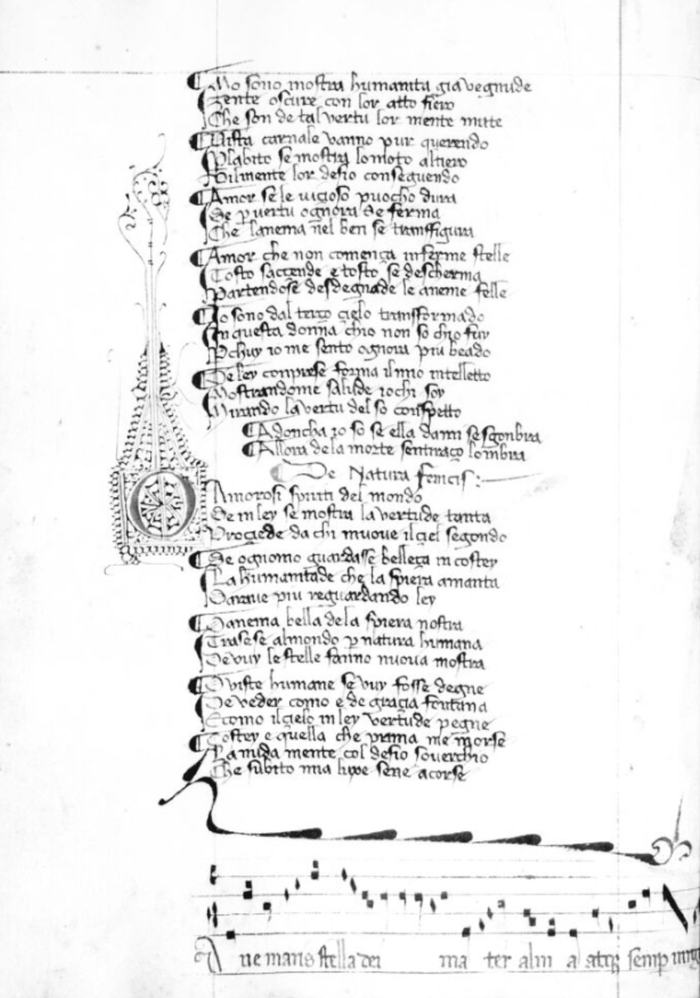 Mo sono mostra humanita gia vegnude
Gente oscure con lor atto fiero
Che son de tal vertu lor mente nutte
Vista carnale vanno pur querendo
Plabito se mostra lo moto altiero
Vilmente lor desio conseguendo
Amor se le vicioso puocho dura
Se p vertu ognora se ferma
Che lanema nel ben se transfigura
Amor che non comença inferme stelle
Tosto saccende e tosto se descherma
Partendose desdegnade le aneme felle
Io sono dal terço cielo transformado
In questa donna chio non so chio fuy
P chuy io me sento ognora piu beado
De ley comprese forma il mio intelletto
Mostrandome salude i ochi soy
Mirando la vertu del so conspetto
Adoncha io so se ella da mi se sgonbra
Allora de la morte sentiraço lombra
De Natura Femeis
O Amorosi spiriti del mondo
Se in ley se mostra la vertude tanta
Procede da chi muove il ciel segondo
Se ognomo guardasse belleça in costey
La humanitade che la spiera amanta
Sarave piu reguardando ley
Lanema bella de la spiera nostra
Trasese al mondo p natura humana
De vuy le stelle fanno nuova mostra
O viste humane se vuy fosse degne
De veder como e de gracia fontana
E como il cielo in ley vertude pegne
Costey e quella che prima me morse
La nuda mente col desio soverchio
Che subito mia luxe sene acorse
Ave maris stella dei ma ter alm a atq semp virg